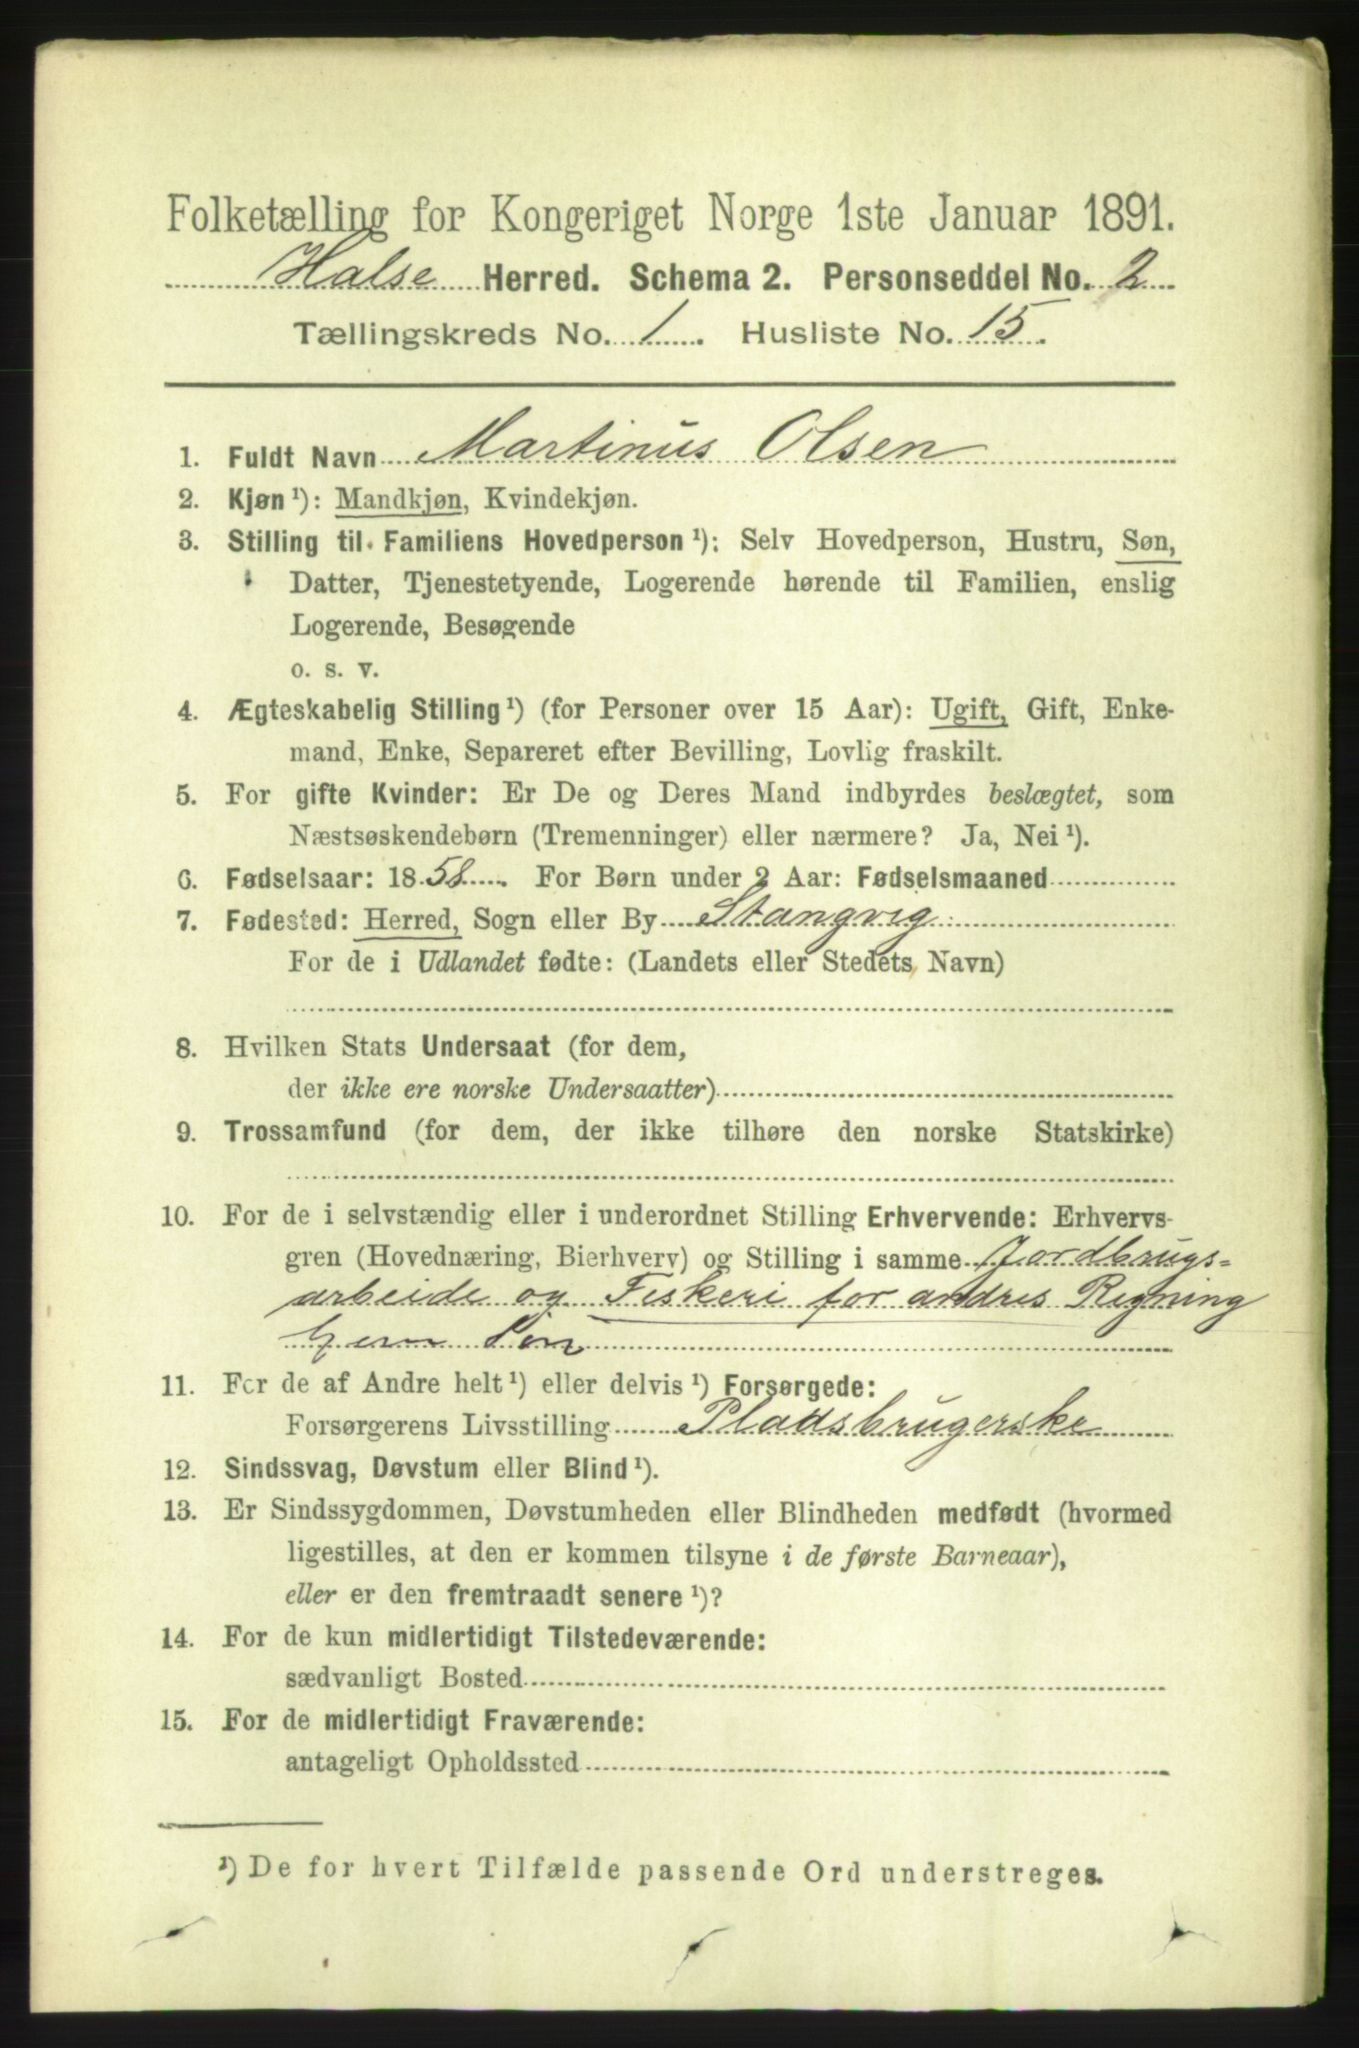 Folketælling for Kongeriget Norge 1ste Januar 1891.
Halse Herred. Schema 2. Personseddel No. 2
Tællingskreds No. 1. Husliste No. 15.
1. Fuldt Navn Martinus Olsen
2. Kjøn ¹): Mandkjøn, Kvindekjøn.
3. Stilling til Familiens Hovedperson ¹): Selv Hovedperson, Hustru, Søn,
Datter, Tjenestetyende, Logerende hørende til Familien, enslig
Logerende, Besøgende
o. s. v.
4. Ægteskabelig Stilling ¹) (for Personer over 15 Aar): Ugift, Gift, Enke-
mand, Enke, Separeret efter Bevilling, Lovlig fraskilt.
5. For gifte Kvinder: Er De og Deres Mand indbyrdes beslægtet, som
Næstsøskendebørn (Tremenninger) eller nærmere? Ja, Nei ¹).
6. Fødselsaar: 1858. For Børn under 2 Aar: Fødselsmaaned
7. Fødested: Herred, Sogn eller By Stangvig
For de i Udlandet fødte: (Landets eller Stedets Navn)
8. Hvilken Stats Undersaat (for dem,
der ikke ere norske Undersaatter)
9. Trossamfund (for dem, der ikke tilhøre den norske Statskirke)
10. For de i selvstændig eller i underordnet Stilling Erhvervende: Erhvervs-
gren (Hovednæring, Bierhverv) og Stilling i samme Jordbrugs=
arbeide og Fiskeri for andres Regning
hjem Søn
11. For de af Andre helt ¹) eller delvis ¹) Forsørgede:
Forsørgerens Livsstilling Pladsbrugerske
12. Sindssvag, Døvstum eller Blind ¹).
13. Er Sindssygdommen, Døvstumheden eller Blindheden medfødt (hvormed
ligestilles, at den er kommen tilsyne i de første Barneaar),
eller er den fremtraadt senere ¹)?
14. For de kun midlertidigt Tilstedeværende:
sædvanligt Bosted
15. For de midlertidigt Fraværende:
antageligt Opholdssted
¹) De for hvert Tilfælde passende Ord understreges.